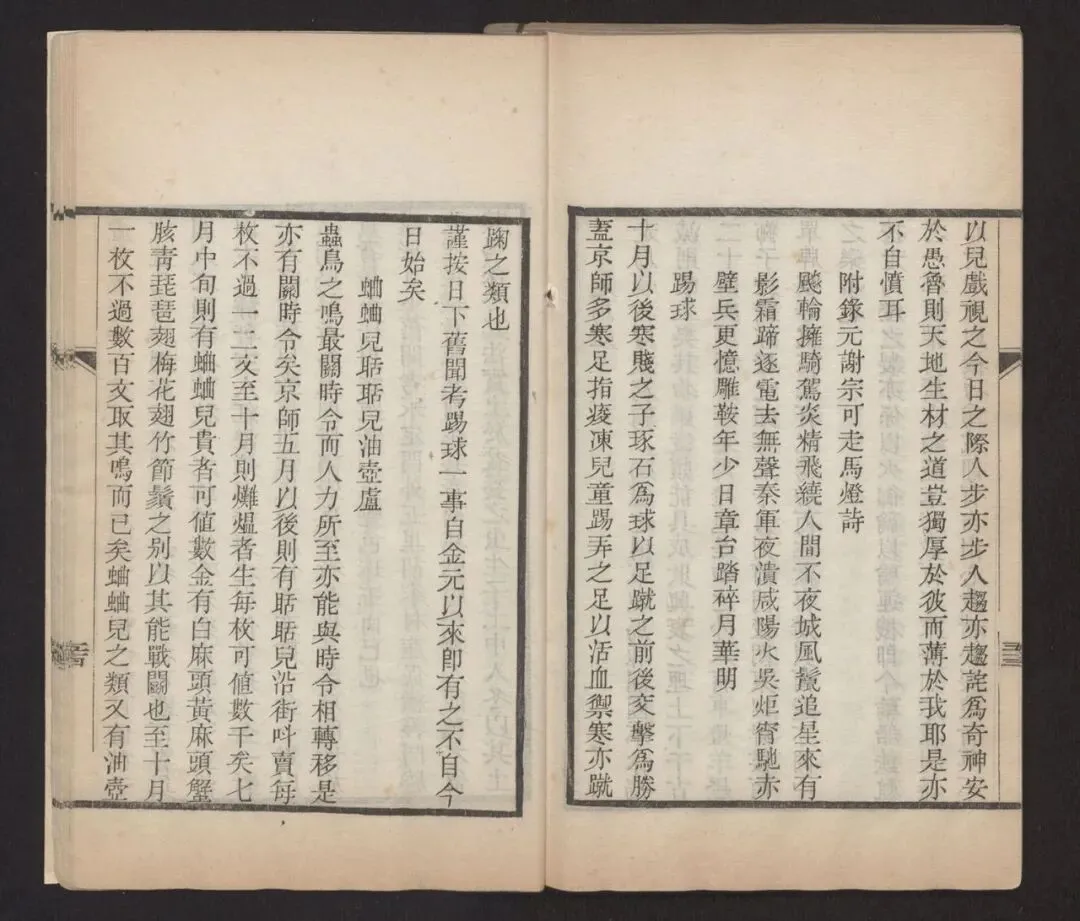 以兒戲視之今日之際人步亦步人趨亦趨詫爲奇神安
於愚魯則天地生材之道豈獨厚於彼而薄於我耶是亦
不自憤耳
附錄元謝宗可走馬燈詩
飈輪擁騎駕炎精飛繞人間不夜城風鬣追星來有
影霜蹄逐電去無聲秦軍夜潰咸陽火吳炬宵馳赤
壁兵更憶雕鞍年少日章台踏碎月華明
踢球
十月以後寒賤之子琢石爲球以足蹴之前後交擊爲勝
蓋京師多寒足指痠凍兒童踢弄之足以活血禦寒亦蹴
踘之類也
謹按日下舊聞考踢球一事自金元以來卽有之不自今
日始矣
蛐蛐兒聒聒兒油壺盧
蟲鳥之鳴最關時令而人力所至亦能與時令相轉移是
亦有關時令矣京師五月以後則有聒聒兒沿街叫賣每
枚不過一二文至十月則爩熅者生每枚可值數千矣七
月中旬則有蛐蛐兒貴者可值數金有白麻頭黃麻頭蟹
胲青琵琶翅梅花翅竹節鬚之别以其能戰鬭也至十月
一枚不過數百文取其鳴而已矣蛐蛐兒之類又有油壺